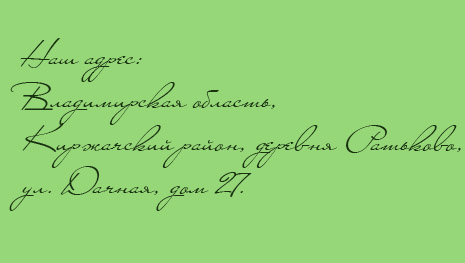 Наш адрес:
Владимирская область,
Киржачский район, деревня Ратьково,
ул. Дачная, дом 27.